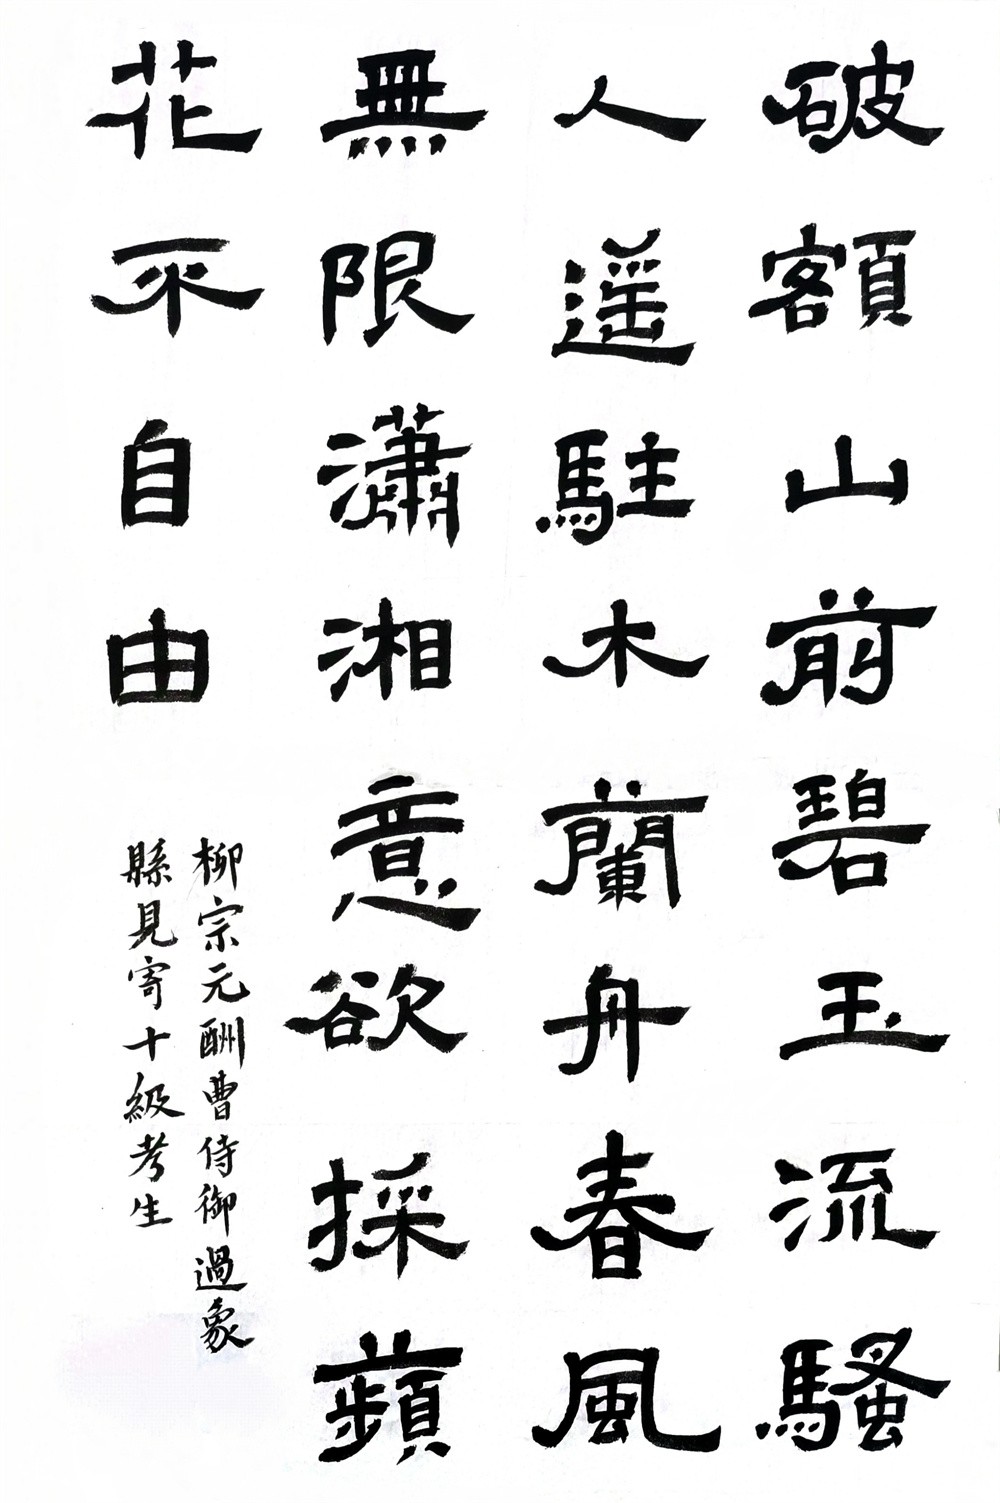 破額山前碧玉流騷
人遥駐木蘭舟春風
無限瀟湘意欲採蘋
花不自由
柳宗元酬曹侍御過象
縣見寄十級考生